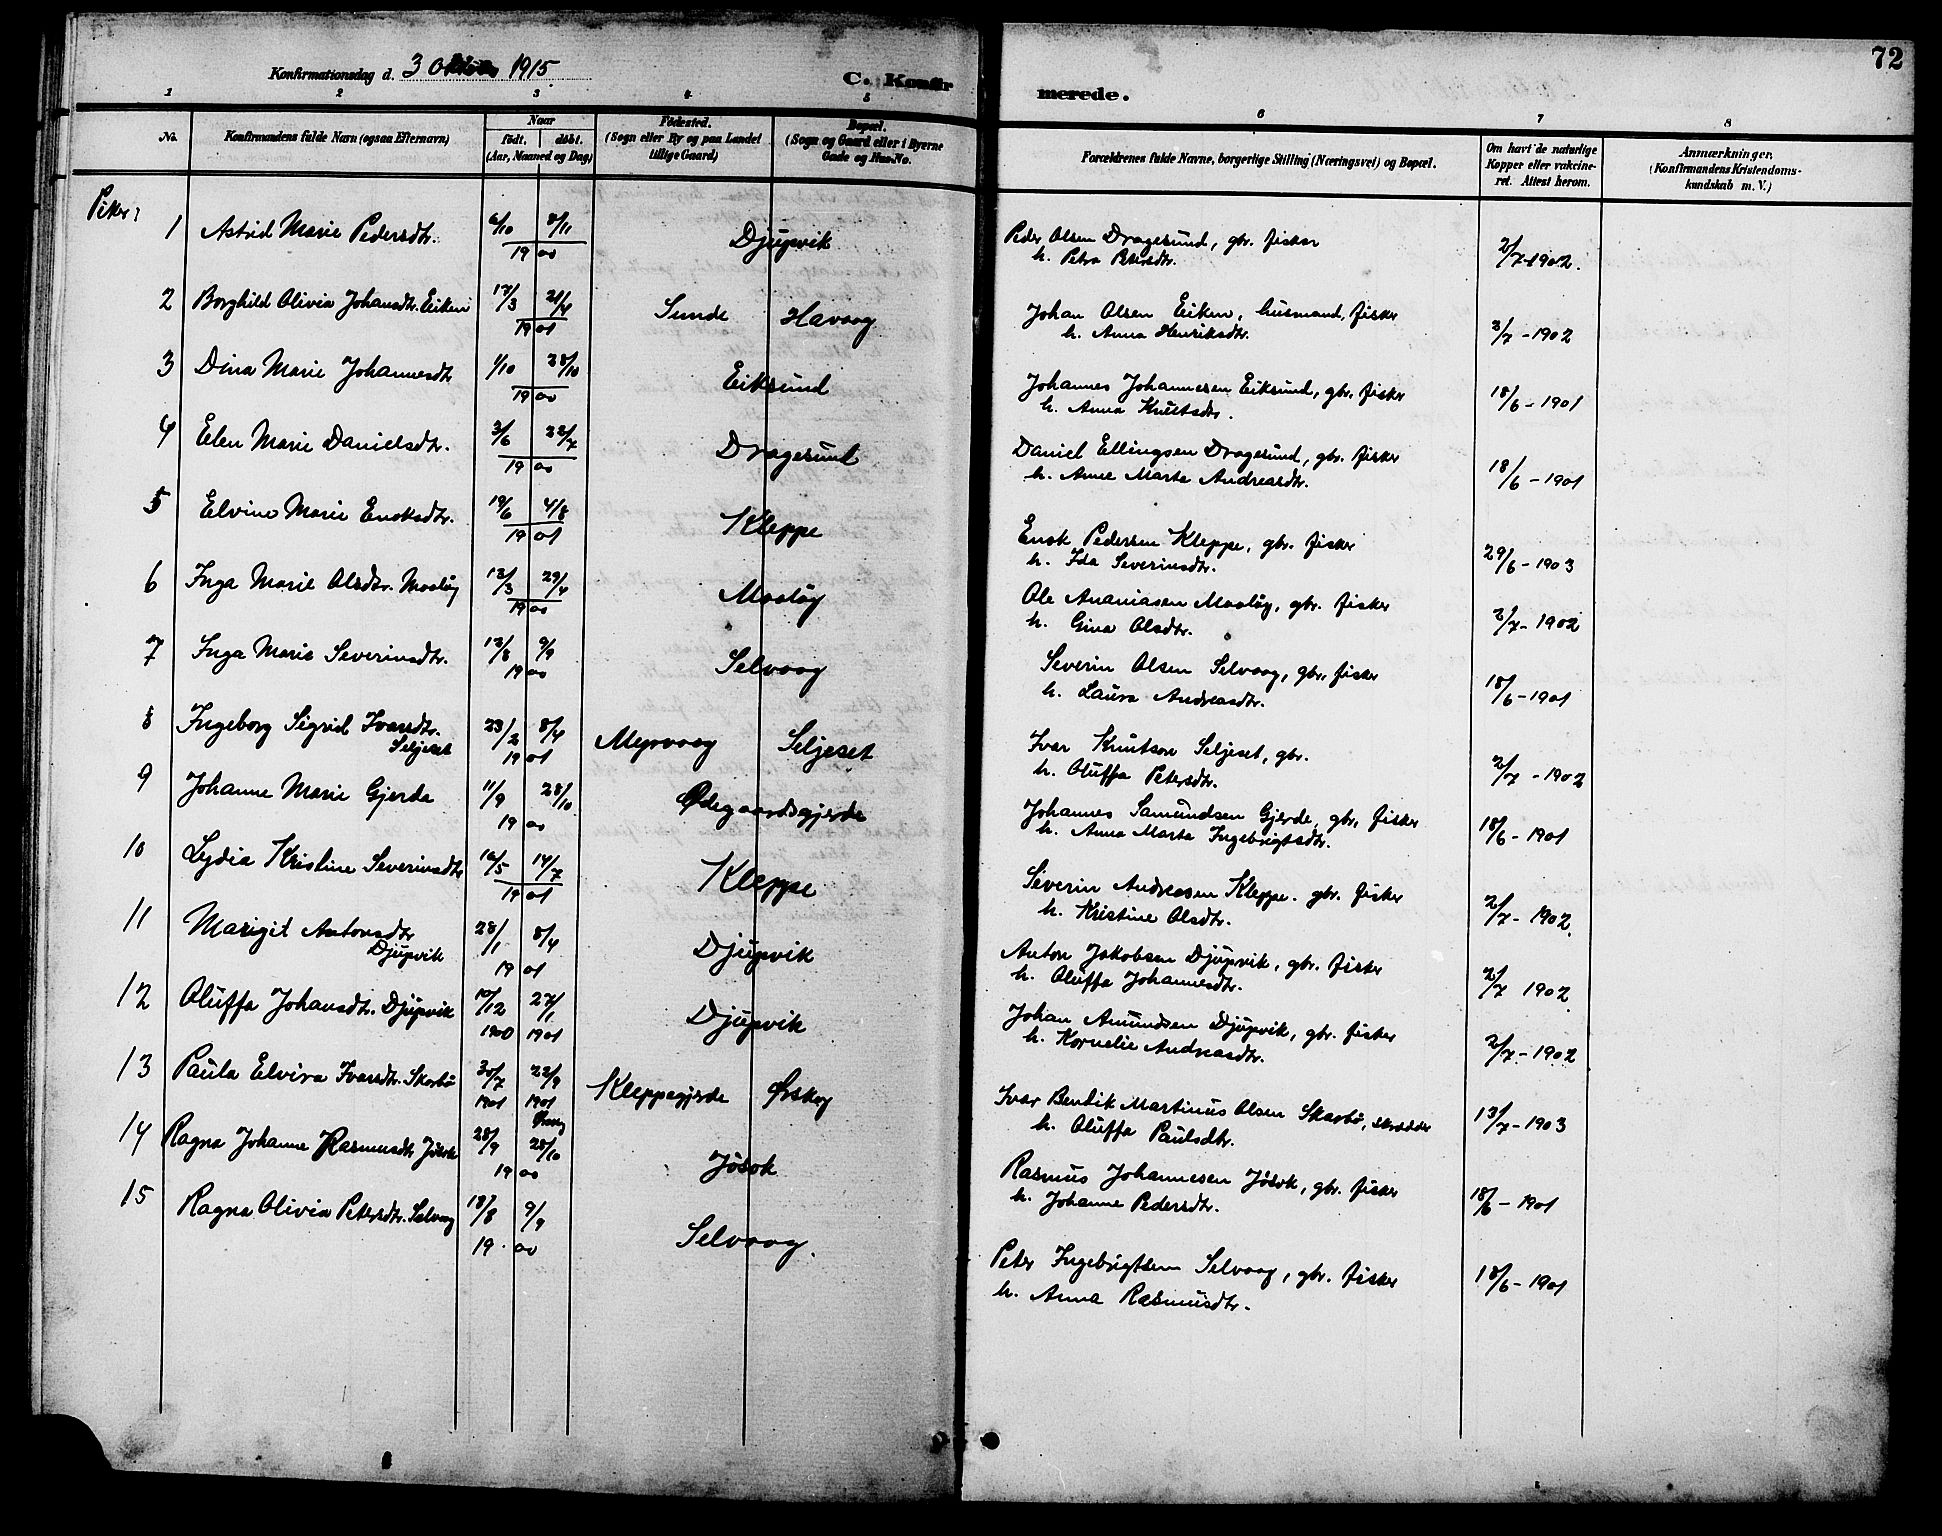 72
Konfirmationsdag d. 3 Oktober 1915
C. Konfirmerede.
1 2 3 4 5 6 7 8
No. Konfirmandens fulde Navn (ogsaa Efternavn) Naar født. døbt. (Aar, Maaned og Dag) Fødested. (Sogn eller By og paa Landet tillige Gaard) Bopæl. (Sogn og Gaard eller i Byerne Gade og Hus-No. Forældrenes fulde Navne, borgerlige Stilling (Næringsvei) og Bopæl. Om havt de naturlige Kopper eller vakcineret. Attest herom. Anmærkninger. (Konfirmandens Kristendomskundskab m. V.)
Piker:
1 Astrid Marie Pedersdtr. 6/10 8/11 1900 Djupvik Peder Olsen Dragesund, gbr. fisker 2/7-1902.
h. Petra Petersdtr.
2 Borghild Olivia Johansdtr. Eiken 17/3 21/4 1901 Sunde Havaag Johan Olsen Eiken, husmand, fisker 2/7-1902
h. Anna Henriksdtr.
3 Dina Marie Johannesdtr 1/10 28/10 1900 Eiksund Johannes Johannesen Eiksund, gbr. fisker 18/6-1901
h. Anna Knutsdtr.
4 Elen Marie Danielsdtr. 3/6 22/7 1900 Dragesund Daniel Ellingsen Dragesund, gbr. fisker 18/6-1901
h. Anne Marta Andreasdtr.
5 Elvine Marie Enoksdtr. 19/6 4/8 1901 Kleppe Enok Pedersen Kleppe, gbr. fisker 29/6-1903
h. Ida Severinsdtr.
6 Inga Marie Olsdtr. Moaløg 12/3 29/4 1900 Moaløg Ole Ananiasen Moaløg, gbr. fisker 2/7-1902
h. Gina Olsdtr.
7 Inga Marie Severinsdtr. 12/8 9/9 1900 Selvaag Severin Olsen Selvaag, gbr. fisker 18/6-1901
h. Laura Andreasdtr.
8 Ingeborg Sigrid Ivarsdtr. Seljeset 23/2 8/4 1901 Myrvaag Seljeset Ivar Knutson Seljeset, gbr. 2/7-1902
h. Oluffa Petersdtr.
9 Johanne Marie Gjerde 11/9 28/10 1900 Ødegaardsgjerde Johannes Samundsen Gjerde, gbr. fisker 18/6-1901
h. Anna Marta Ingebrigtsdtr.
10 Lydia Kristine Severinsdtr 16/5 14/7 1901 Kleppe Severin Andreasen Kleppe. gbr. fisker 2/7-1902.
h. Kristine Olsdtr.
11 Margit Antonsdtr Djupvik 28/1 8/4 1901 Djupvik Anton Jakobsen Djupvik, gbr. fisker 2/7 1902.
h. Oluffa Johannesdtr.
12 Oluffa Johansdtr. Djupvik 10/12 1900 27/1 1901 Djupvik Johan Amundsen Djupvik, gbr. fisker 2/7-1902
h. Kornelie Andreasdtr.
13 Paula Elvira Ivarsdtr. Skarbø 30/7 1901 22/9 1901 Kleppegjerde Ørskog Ivar Bendik Martinus Olsen Skarbø, skrædder 13/7-1903
h. Oluffa Paulsdtr.
14 Ragna Johanne Rasmusdtr Jøsok 28/9 28/10 1900 Jøsok Rasmus Johannesen Jøsok, gbr. fisker 18/6-1901
h. Johanne Pedersdtr.
15 Ragna Olivia Petersdtr. Selvaag 18/8 9/9 1900 Selvaag. Peter Ingebrigtsen Selvaag, gbr. fisker 18/6-1901
h. Anna Rasmusdtr.